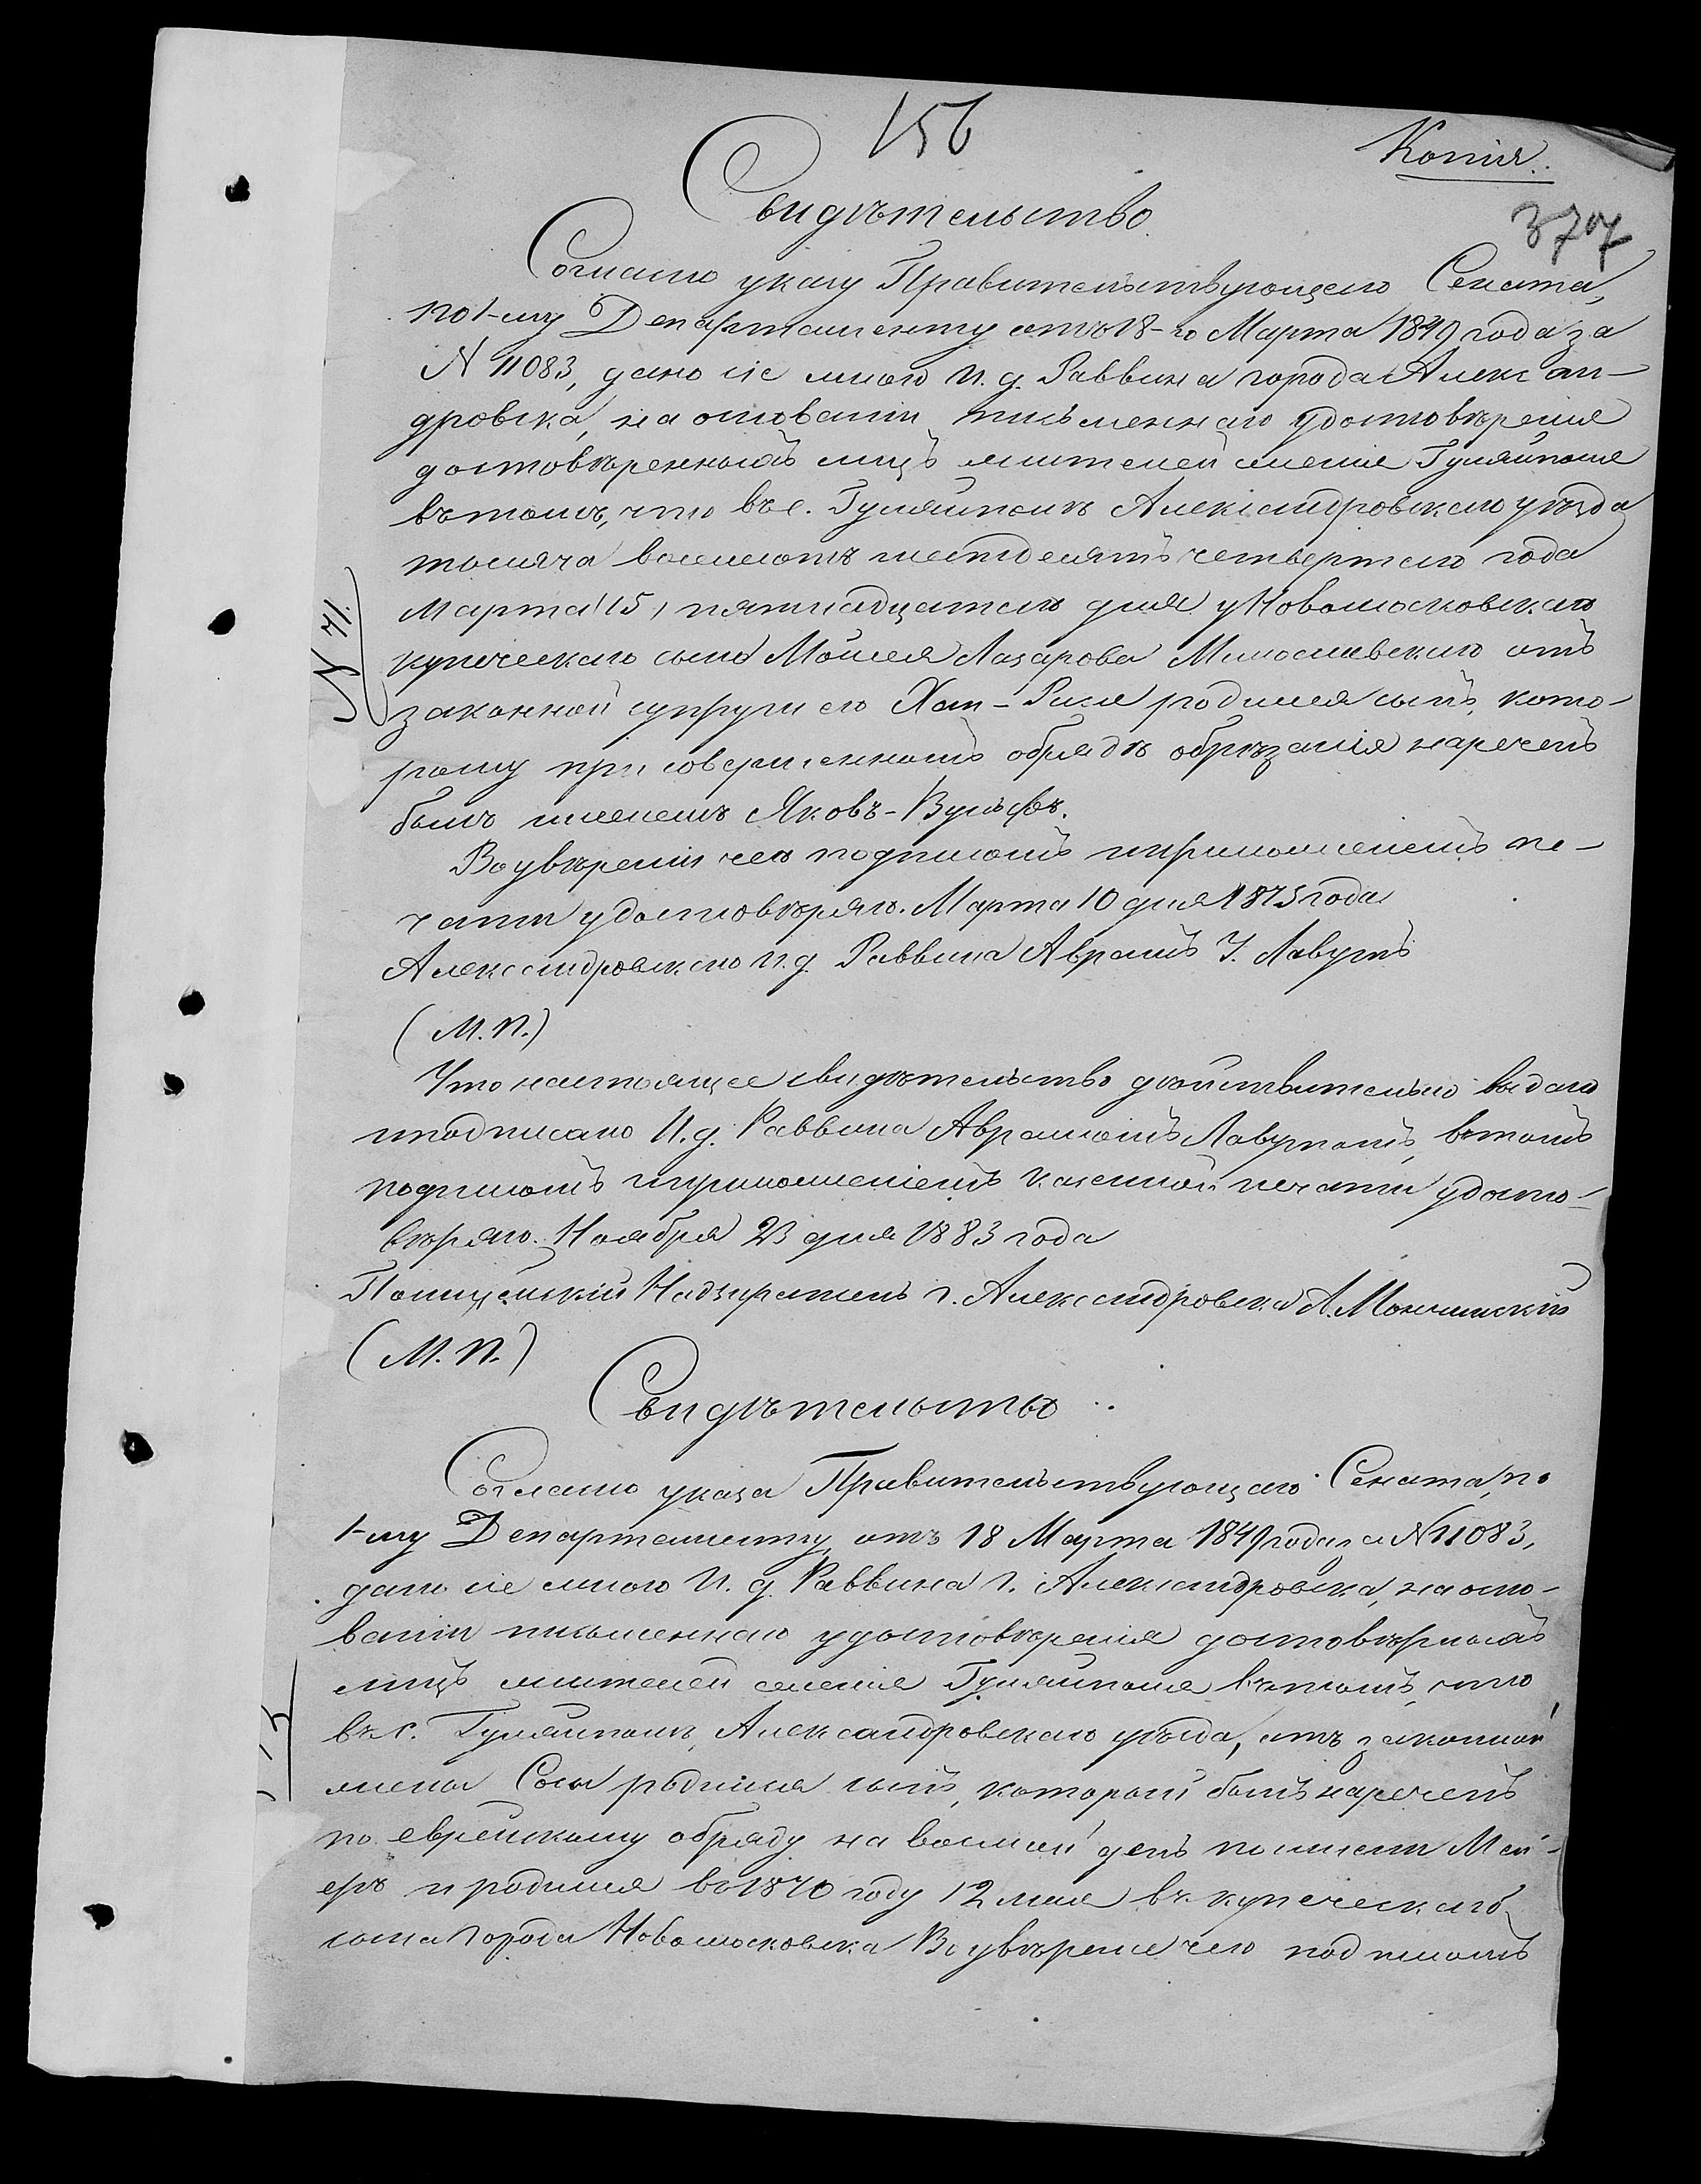 156
Копія.
3707
Свидѣтельство
Согласно указу Правительствующего Сената,
по 1-му Департаменту отъ 18-го Марта 1849 года за
N 11083, дано сіе мною И. д. Раввина города Алексан-
дровска, на основаніи письменнаго удостовѣренія
достовѣренныхъ лицъ жителей селенія Гуляйполя
въ томъ, что въ с. Гуляйполѣ Александровскаго уѣзда
тысяча восемьсотъ шестдесятъ четвертаго года
N 41.
Марта (15) пятнадцатаго дня у Новомосковскаго
купеческаго сына Моисея Лазарова Милославскаго отъ
законной супруги его Хаи-Риси родился сынъ, кото-
рому при совершенномъ обрядѣ обрѣзанія нареченъ
былъ именемъ Яковъ-Вульфъ.
Во увѣреніи чего подписомъ и приложеніемъ пе-
чати удостовѣряю. Марта 10 дня 1875 года
Александровскаго и. д. Раввина Аврамъ У. Лавутъ
(М. П.)
Что настоящее свидѣтельство дѣйствительно выдано
и подписано И. д. Раввина Аврамомъ Лавутомъ, въ томъ
подписомъ и приложеніемъ казенной печати удосто-
вѣряю. Ноября 23 дня 1883 года
Полицейскій Надзиратель г. Александровска А.
(М. П.)
Свидѣтельство
Согласно указа Правительствующаго Сената, по
1-му Департаменту, отъ 18 Марта 1849 года за N 11083,
дано сіе мною И. д. Раввина г. Александровска, на осно-
ваніи письменнаго удостовѣренія достовѣрныхъ
лицъ жителей селенія Гуляйполя въ томъ, что
въ с. Гуляйполѣ, Александровскаго уѣзда, отъ законной
жены Соси родился сынъ, который былъ нареченъ
по еврейскому обряду на восмой день по имени Мей-
еръ и родился въ 1870 году 12 мая въ купеческаго
сына города Новомосковска Во увѣреніе чего подписомъ